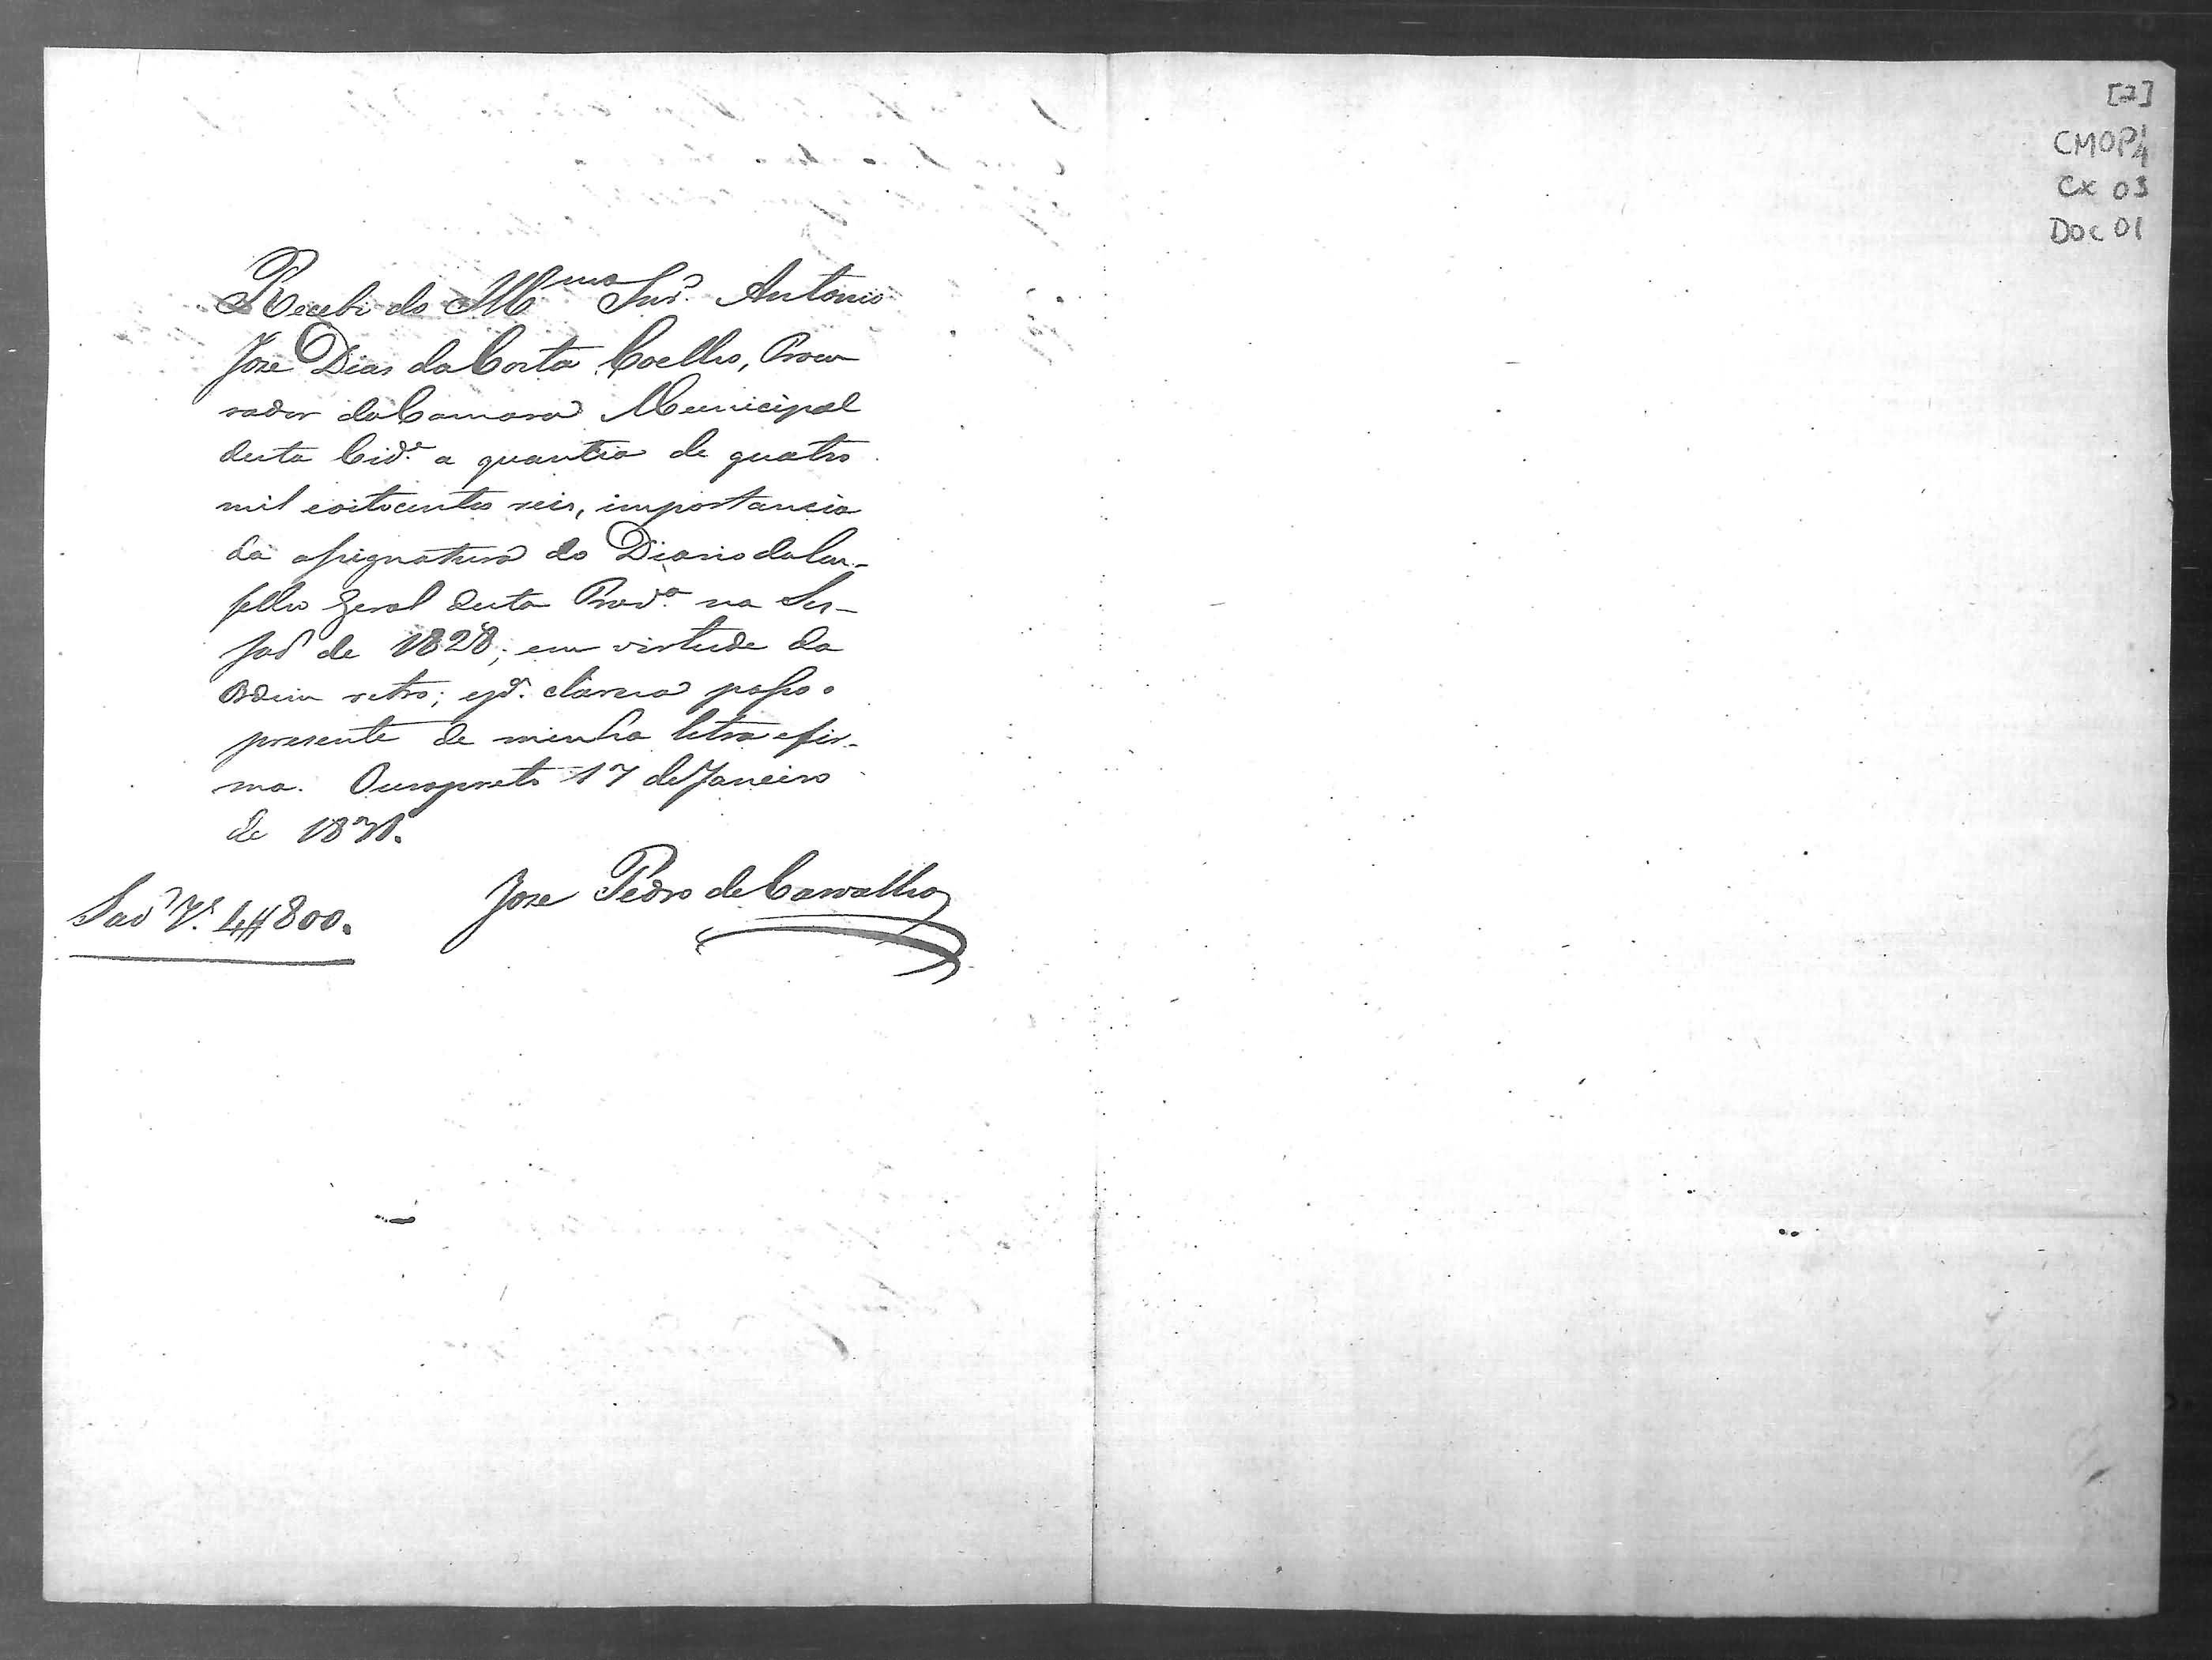 Recebi do Ill.mo Snr. Antonio
Joze Dias da Costa Coelho, Procu
rador da Camara Municipal
desta Cid.e a quantia de quatro
mil eoitocentos reis, importancia
da assignatura do Diario do Con-
selho Geral desta Prov.a na Ses-
saõ de 1828; em virtude da
Ordem retro; epa. clareza passo o
presente de minha letra efir-
ma. Ouropreto 17 de Janeiro
de 1831.
Joze Pedro de Carvalho
Saõ Rs. 4#800.
[2]
CMOP
Cx 03
Doc 01